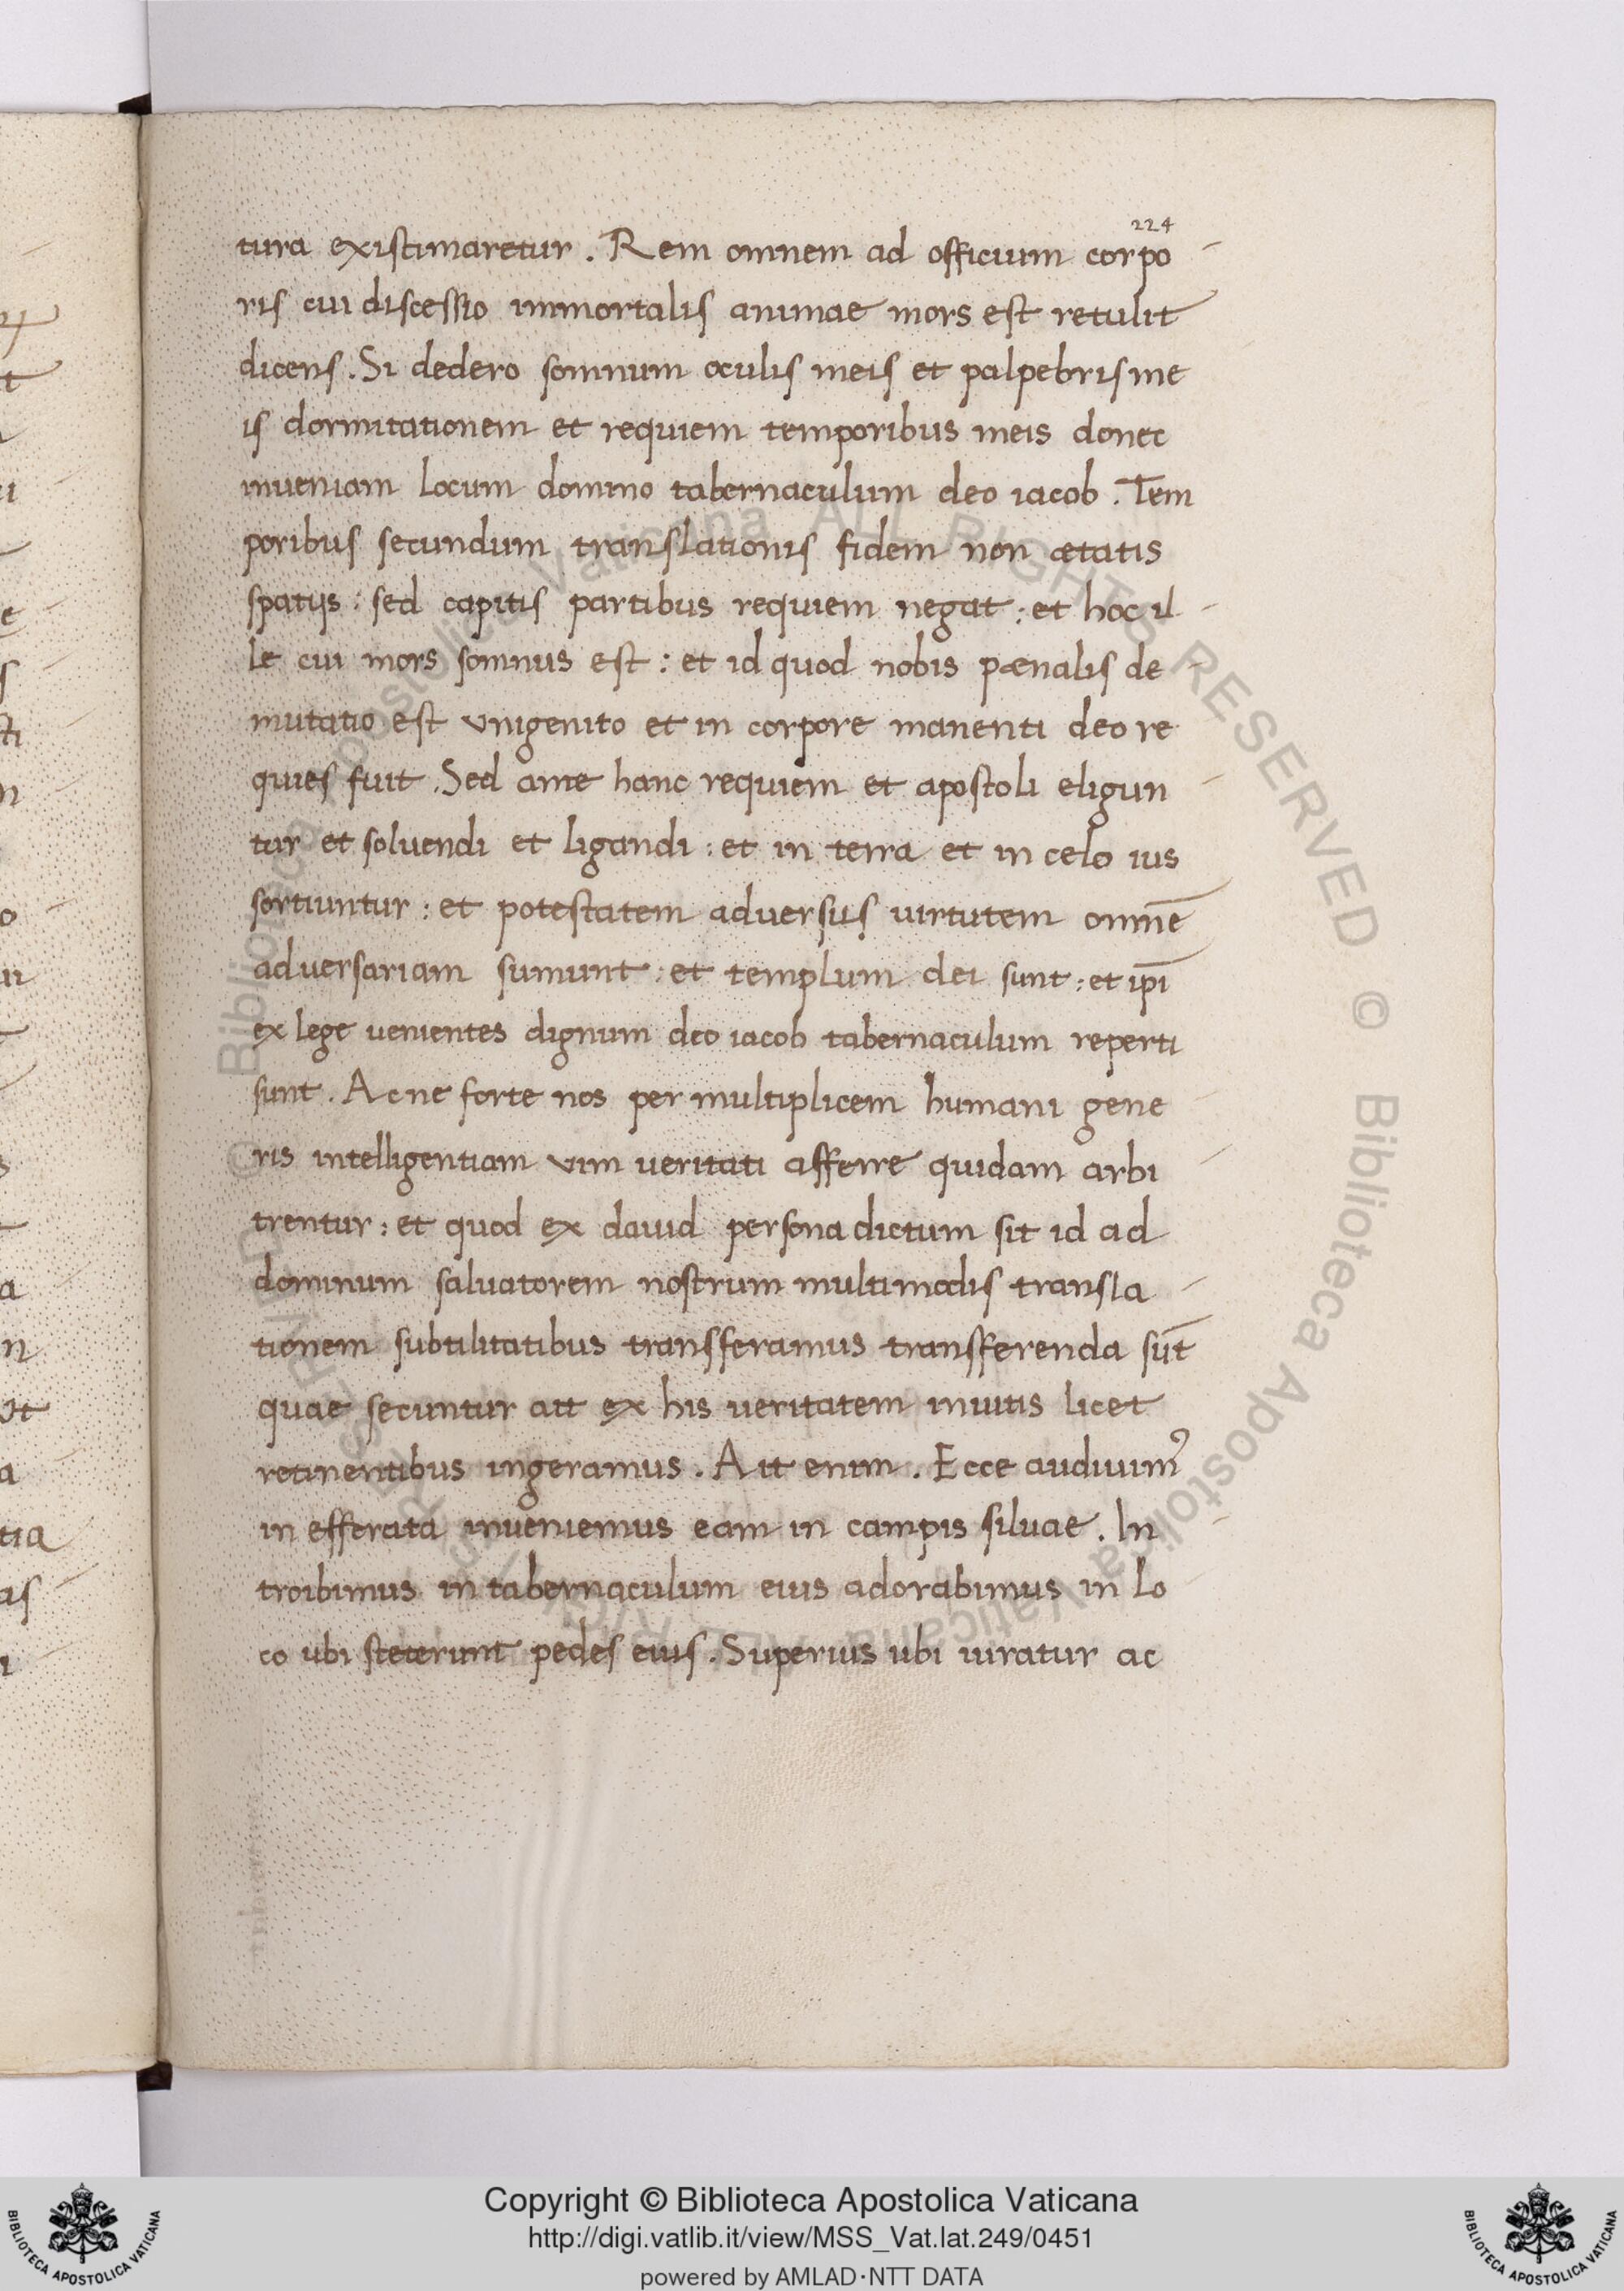 224
tura existimaretur . Rem omnem ad officium corpo
ris cui discessio immortalis animae mors est retulit
dicens . Si dedero somnum oculis meis et palpebris me
is dormitationem et requiem temporibus meis donec
inueniam locum domino tabernaculum deo iacob . Tem
poribus secundum translationis fidem non ætatis
spatijs : sed capitis partibus requiem negat : et hoc il
le cui mors somnus est : et id quod nobis pænalis de
mutatio est vnigenito et in corpore manenti deo re
quies fuit . Sed ame hanc requiem et apostoli eligun
tur et soluendi et ligandi : et in terra et in celo ius
sortiuntur : et potestatem aduersus uirtutem omnē
aduersariam sumunt : et templum dei sunt : et ip̄i
ex lege uenientes dignum deo iacob tabernaculum reperti
sunt . Ac ne forte nos per multiplicem humani gene
ris intelligentiam vim ueritati afferre quidam arbi
trentur : et quod ex dauid persona dictum sit id ad
dominum saluatorem nostrum multimodis transla
tionem subtilitatibus transferamus transferenda sūt
quae secuntur aıt ex his ueritatem inuitis licet
retinentibus ingeramus . Ait enim . Ecce audiuimꝰ
in efferata inueniemus eam in campis siluae . In
troibimus in tabernaculum eius adorabimus in lo
co ubi steterunt pedes eius . Superius ubi iuratur ac
© Biblioteca Apostolica Vaticana ALL RIGHTS RESERVED © Biblioteca Apostolica Vaticana ALL RIGHTS RESERVED
Copyright © Biblioteca Apostolica Vaticana
http://digi.vatlib.it/view/MSS_Vat.lat.249/0451
powered by AMLAD·NTT DATA
BIBLIOTECA APOSTOLICA VATICANA
BIBLIOTECA APOSTOLICA VATICANA